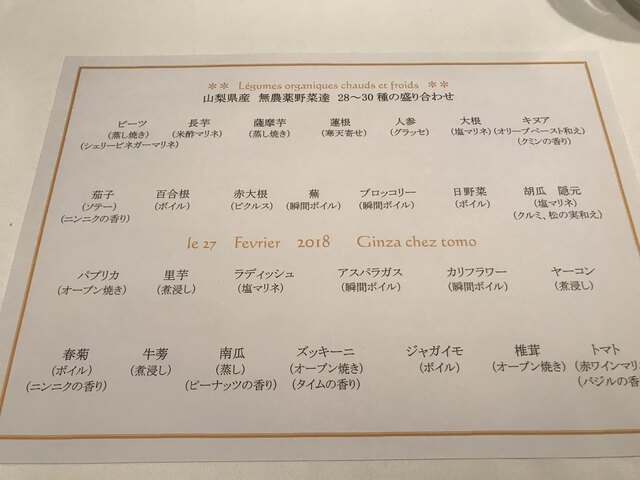 ** Légumes organiques chauds et froids **
山梨県産 無農薬野菜達 28～30種の盛り合わせ
ビーツ 長芋 薩摩芋 蓮根 人参 大根 キヌア
(蒸し焼き) (米酢マリネ) (蒸し焼き) (寒天寄せ) (グラッセ) (塩マリネ) (オリーブペースト和え)
(シェリービネガーマリネ) (クミンの香り)
茄子 百合根 赤大根 蕪 ブロッコリー 日野菜 胡瓜 隠元
(ソテー) (ボイル) (ピクルス) (瞬間ボイル) (瞬間ボイル) (ボイル) (塩マリネ)
(ニンニクの香り) (クルミ、松の実和え)
le 27 Fevrier 2018 Ginza chez tomo
パプリカ 里芋 ラディッシュ アスパラガス カリフラワー ヤーコン
(オーブン焼き) (煮浸し) (塩マリネ) (瞬間ボイル) (瞬間ボイル) (煮浸し)
春菊 牛蒡 南瓜 ズッキーニ ジャガイモ 椎茸 トマト
(ボイル) (煮浸し) (蒸し) (オーブン焼き) (ボイル) (オーブン焼き) (赤ワインマリ
(ニンニクの香り) (ピーナッツの香り) (タイムの香り) (バジルの香